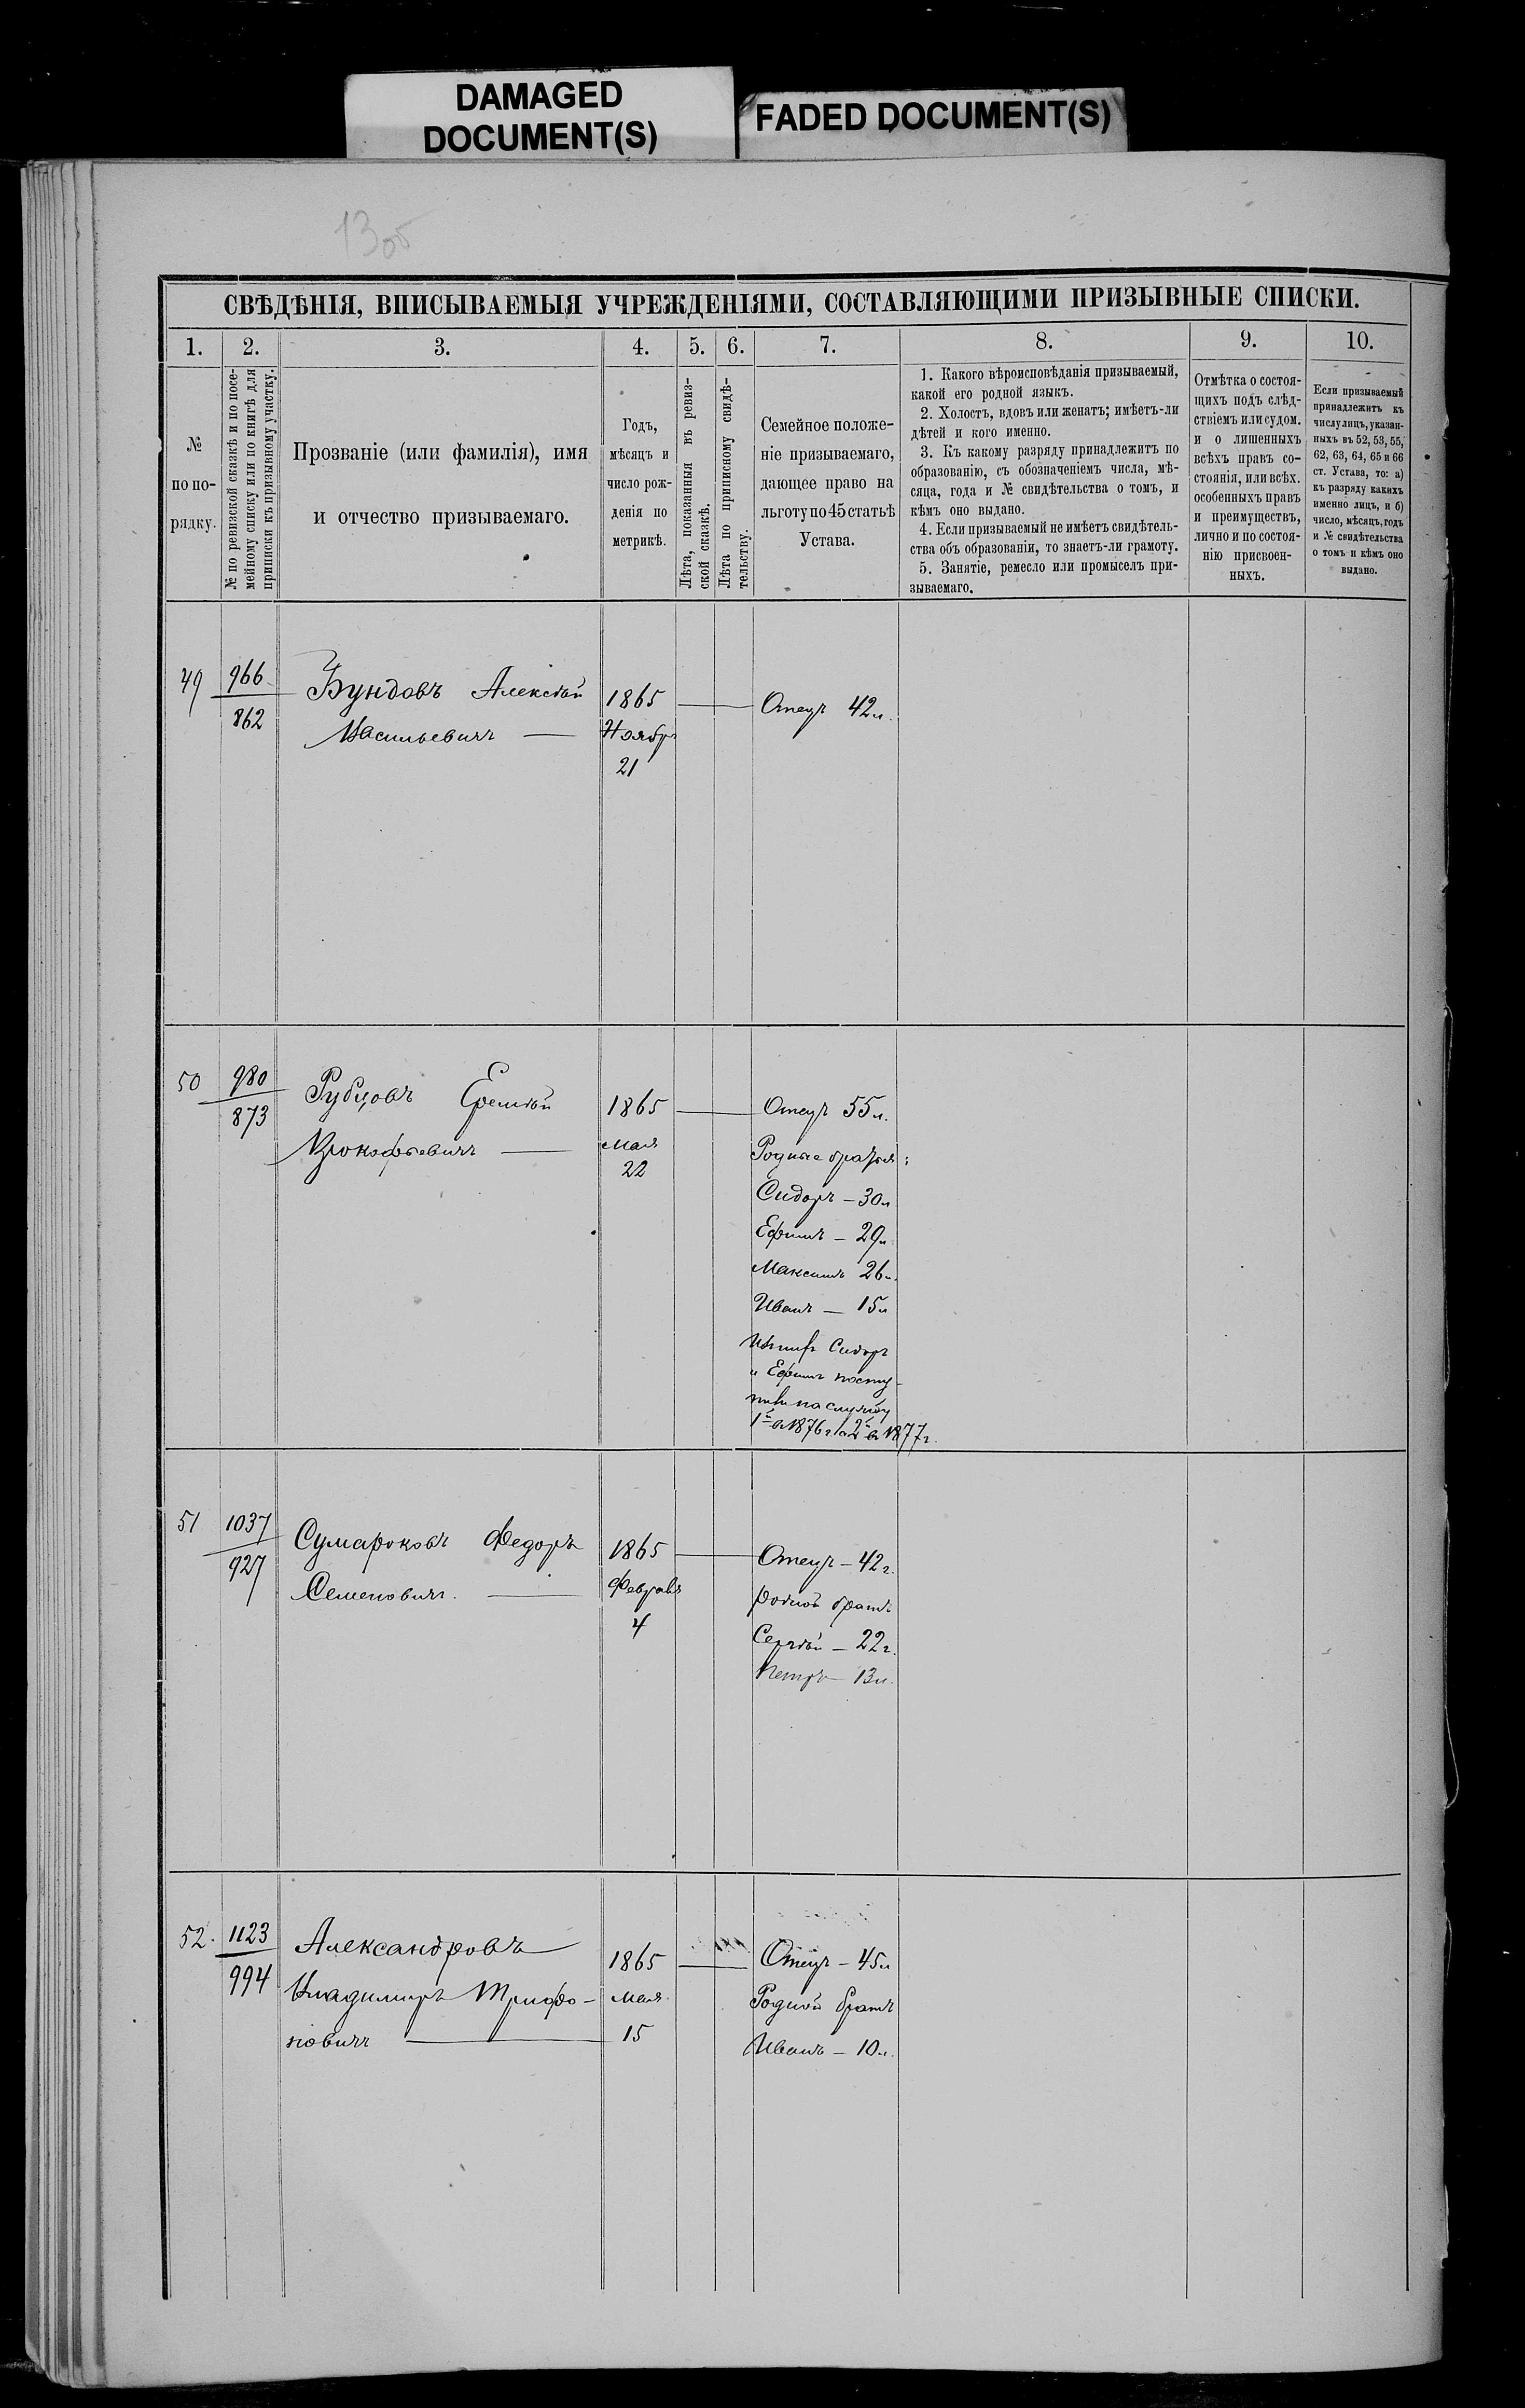 DAMAGED
DOCUMENT(S)
FADED DOCUMENT(S)
13об
СВѢДѢНІЯ, ВПИСЫВАЕМЫЯ УЧРЕЖДЕНІЯМИ, СОСТАВЛЯЮЩИМИ ПРИЗЫВНЫЕ СПИСКИ.
1.
2.
3.
4.
5.
6.
7.
8.
9.
10.
№
по по-
рядку.
№ по ревизской сказкѣ и по посе-
мейному списку или по книгѣ для
приписки къ призывному участку.
Прозваніе (или фамилія), имя
и отчество призываемаго.
Годъ,
мѣсяцъ и
число рож-
денія по
метрикѣ.
Лѣта, показанныя въ ревиз-
ской сказкѣ.
Лѣта по приписному свидѣ-
тельству.
Семейное положе-
ніе призываемаго,
дающее право на
льготу по 45 статьѣ
Устава.
1. Какого вѣроисповѣданія призываемый,
какой его родной языкъ.
2. Холостъ, вдовъ или женатъ; имѣетъ-ли
дѣтей и кого именно.
3. Къ какому разряду принадлежитъ по
образованію, съ обозначеніемъ числа, мѣ-
сяца, года и № свидѣтельства о томъ, и
кѣмъ оно выдано.
4. Если призываемый не имѣетъ свидѣтель-
ства объ образованіи, то знаетъ-ли грамоту.
5. Занятіе, ремесло или промыселъ при-
зываемаго.
Отмѣтка о состоя-
щихъ подъ слѣд-
ствіемъ или судом.
и о лишенныхъ
всѣхъ правъ со-
стоянія, или всѣх.
особенныхъ правъ
и преимуществъ,
лично и по состоя-
нію присвоен-
ныхъ.
Если призываемый
принадлежитъ къ
числу лицъ, указан-
ныхъ въ 52, 53, 55,
62, 63, 64, 65 и 66
ст. Устава, то: а)
къ разряду какихъ
именно лицъ, и б)
число, мѣсяцъ, годъ
и № свидѣтельства
о томъ и кѣмъ оно
выдано.
49
966
862
Бундовъ Алексѣй
Васильевичъ —
1865
Ноябр
21
Отецъ 42 л.
50
980
873
Рубцовъ Еремѣй
Прокофьевичъ —
1865
мая
22
Отецъ 55 л.
Родные братья:
Сидоръ — 30 л
Ефимъ — 29 л
Максимъ 26 л.
Иванъ — 15 л
Изъ нихъ Сидоръ
и Ефимъ посту-
пили на службу
1й въ 1876 г. а 2й въ 1877 г.
51
1037
927
Сумароковъ Федоръ
Семеновичъ. —
1865
Февраля
4
Отецъ — 42 г.
родной братъ
Сергѣй — 22 г.
Петръ — 13 л.
52.
1123
994
Александровъ
Владимиръ Трифо-
новичъ —
1865
мая
15
Отецъ — 45 л
Родной братъ
Иванъ — 10 л.